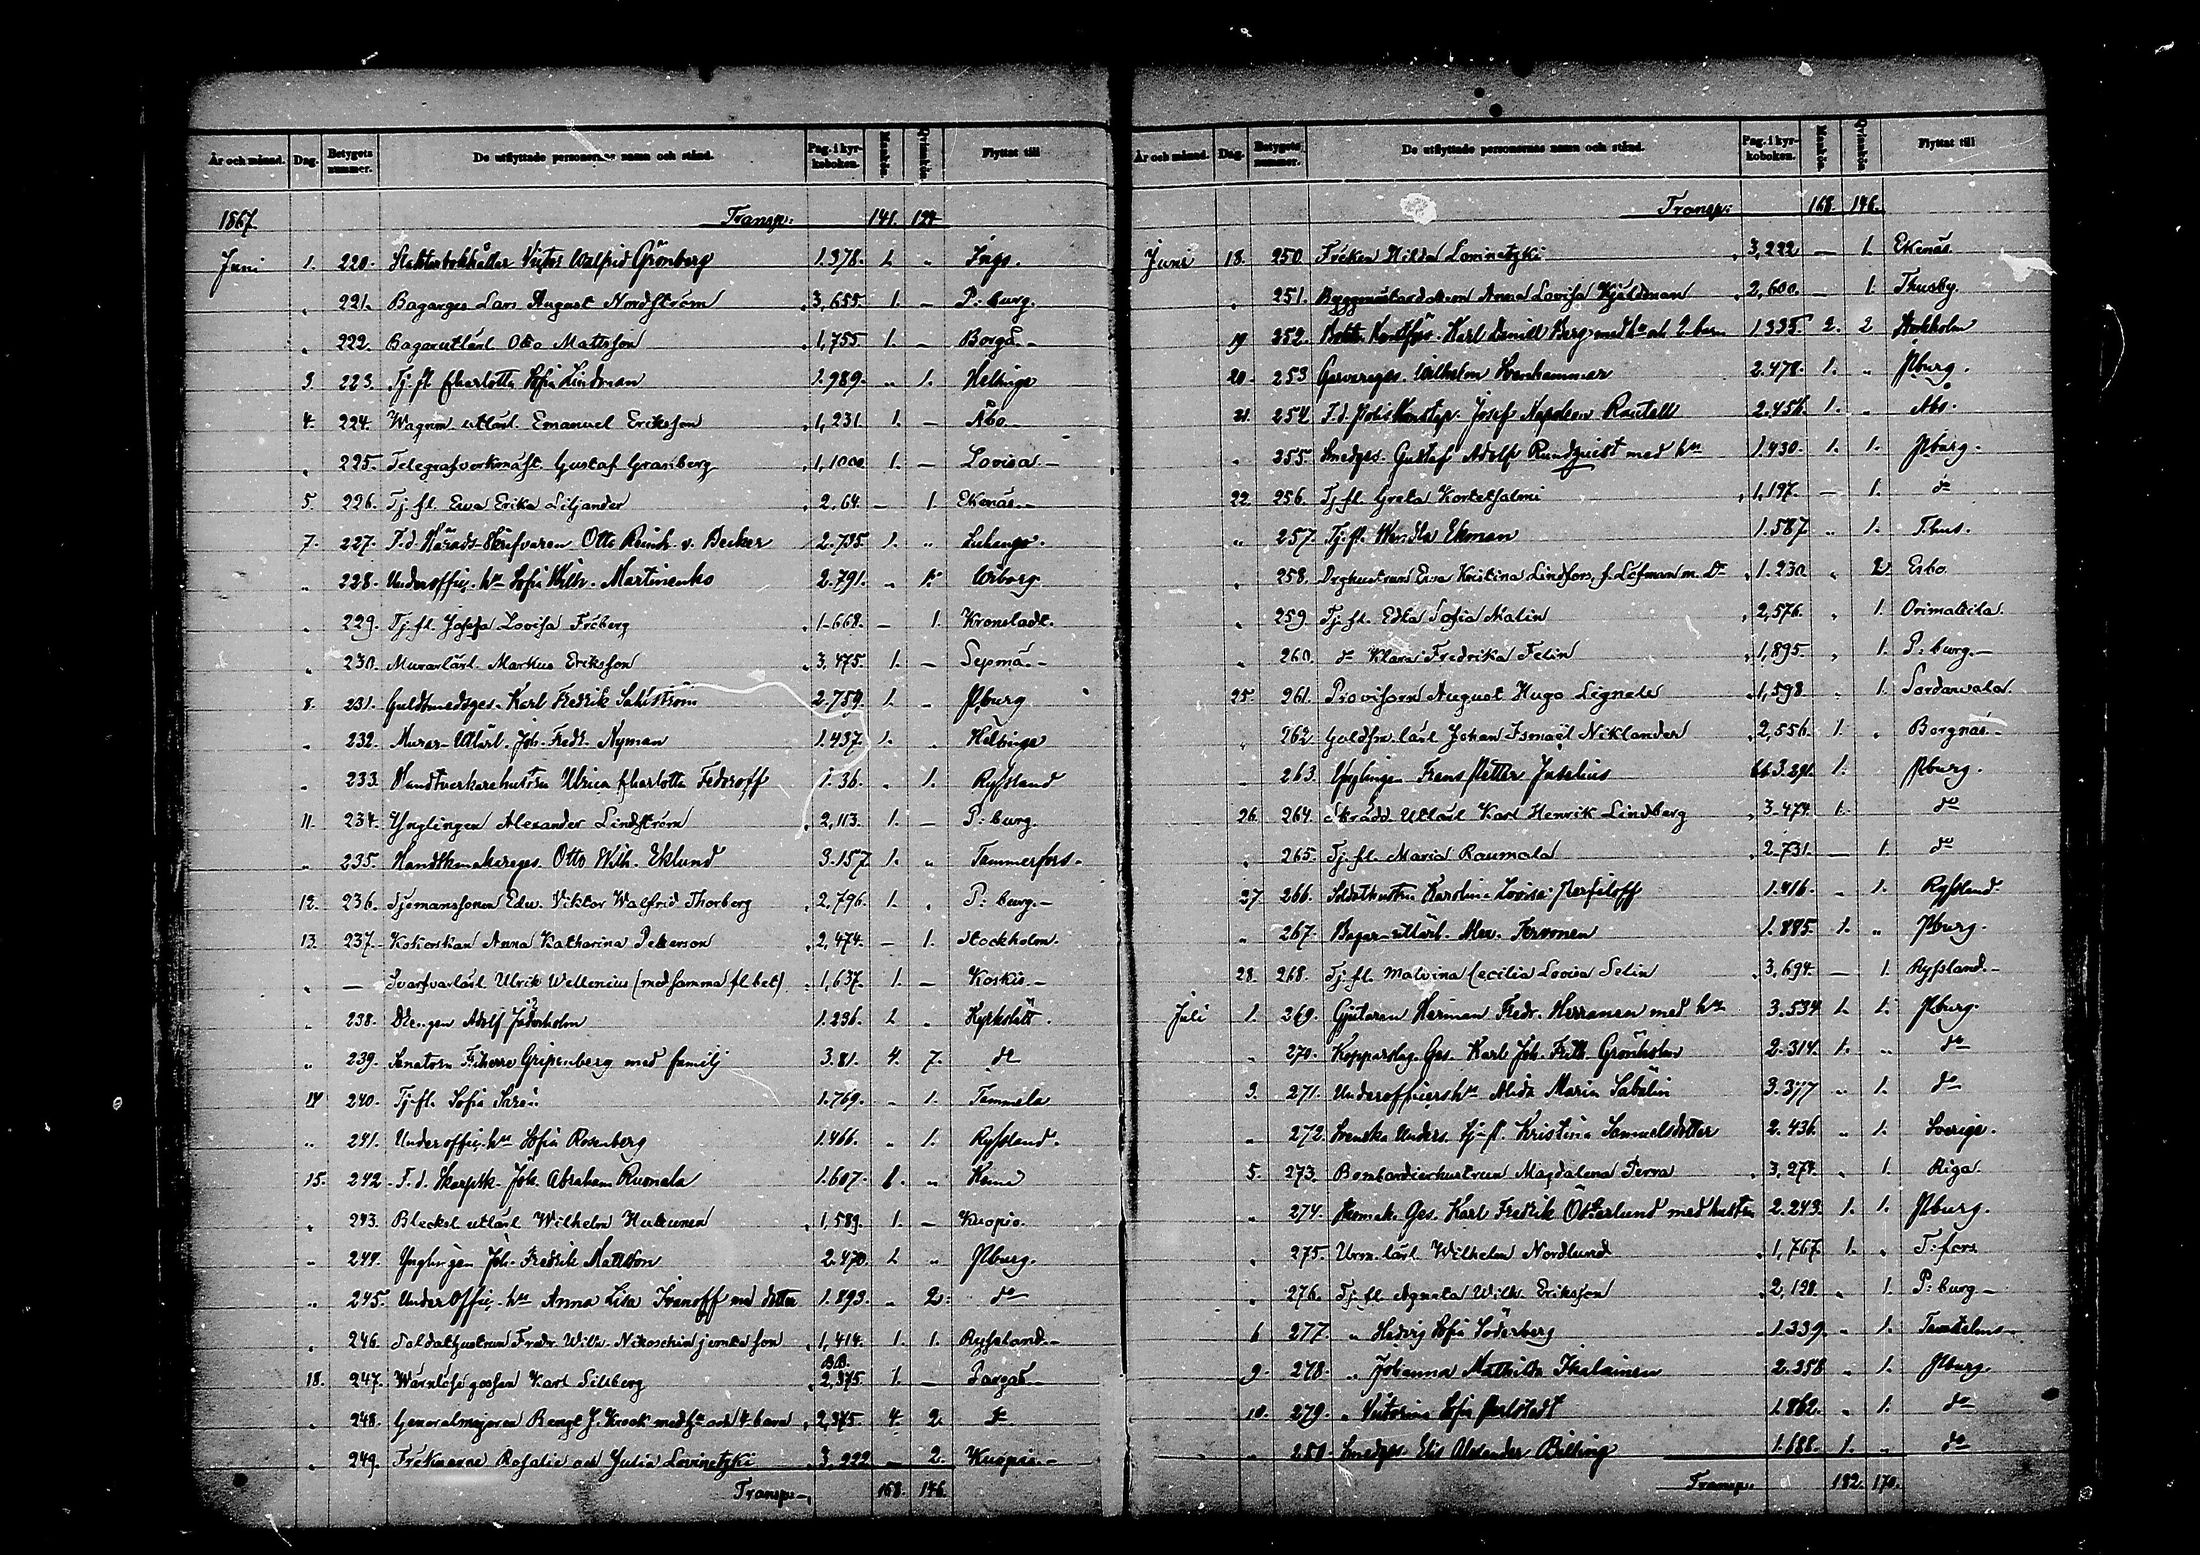 År och månad. Dag. Betygets nummer. De utflyttade personernas namn och stånd. Pag. i kyrkoboken. Mankön Qvinkön Flyttat till
1867. Transp: 141. 124
Juni 1. 220. Victor Walfrid Grönberg 1.378. 1. „ Ingo.
„ 221. Bagarges Lars August Nordström 3,655. 1. — P:burg.
„ 222. Bagareutlärl Otto Mattsson 1,755 1. — Borgå
3. 223. Tj. fl. Charlotta Sofia Lindman 1.989. „ 1. Helsinge
4. 224. Wagnm utlärl. Emanuel Eriksson 1,231 1. — Åbo
„ 225. Telegrafverkmäst. Gustaf Granberg 1,1000 1. — Lovisa
5. 226. Tj. fl. Ewa Erika Liljander 2,64. — 1. Ekenäs
7. 227. F.d. Härads-Skrifvaren Otto Reinh. v. Becker 2.735 1. „
„ 228. Underoffic. hu Sofia Wilh. Martinenko 2.791. „ 1. Wiborg
„ 229. Tj. fl. Josefa Lovisa Fröberg 1.668. — 1. Kronstadt.
„ 230. Murarlärl. Markus Eriksson 3,475. 1. — Sepmä
8. 231. Guldsmedsges. Karl Fredrik Sahlström 2.759. 1. „ P.burg
„ 232. Murar-Utlärl. Joh. Fredr. Nyman 1.437. 1. „ Helsinge
„ 233. Handtverkarehustru Ulrica Charlotta Fedoroff 1.36. „ 1. Ryssland
11. 234. Ynglingen Alexander Lindström 2,113. 1. — P:burg.
„ 235. Handskmakareges. Otto Wilh. Eklund 3.157 1. „ Tammerfors
12. 236. Sjömanssonen Edw. Viktor Walfrid Thorberg 2,796. 1. „ P:burg.
13. 237. Kokerskan Anna Katharina Peterson 2,474. — 1. Stockholm.
„ — Svarfvarlärl Ulrik Wellenius (med samma fl. bet) 1,637. 1. — Koskis
„ 238. Drengen Adolf Söderholm 1.236. 1. „ Kyrkslätt.
„ 239. Senatorn Friherre Gripenberg med familj 3.81. 4. 7. do
14 240. Tj. fl. Sofia 1.769. „ 1. Tammela
„ 241. Underoffic. hu Sofia Rosenberg 1.466. „ 1. Ryssland.
15. 242. F. d. Skarpsk. Joh. Abraham Ruomala 1.607. 1. „
„ 243. Blecksl utlärl Wilhelm Hukunen 1,589. 1. — Kuopio.
„ 244. Ynglingen Joh. Fredrik Mattson 2.470. 1. „ P.burg.
„ 245. Underoffic. hu Anna Lisa Ivanoff med dotter 1.893. „ 2. do
„ 246. Soldathustrun Fredr. Wilh. Nikoschin jemte son 1,414. 1. 1. Ryssland
18. 247. Wärnlöse gossen Karl Sillberg BB. 2,375 1. — Pargas
„ 248. Generalmajoren Bengt J. Krook med hu och 4 barn 2,375. 4. 2. do
„ 249. Fröknarne Rosalie och Julia Lovinetzki 3,222 — 2. Kuopio
Transp: 168. 146.
År och månad. Dag. Betygets nummer. De utflyttade personernas namn och stånd. Pag. i kyrkoboken. Mankön Qvinkön Flyttat till
Transp: 168. 146.
Juni 18. 250. Fröken Hilda Lovinetzki 3,222 — 1. Ekenäs
„ 251. Byggmästardottern Anna Lovisa Hjeldman 2,600. — 1. Thusby.
19 252. Karl Daniel Berg med hu och 2 barn 1.335 2. 2 Stockholm
20. 253 Garfvareges. Wilhelm Svenhammar 2.478. 1. „ P.burg.
21. 254 F. d. Poliskonstap. Josef Napoleon Rautell 2.456. 1. „ Åbo.
„ 255. Smedges. Gustaf Adolf Rundquist med hu 1.430. 1. 1. P.burg.
22. 256. Tj. fl. Greta Kortetsalmi 1,197. — 1. do
„ 257. Tj. fl. Wendla Ekman 1.587 „ 1. Thus.
„ 258. Drghustrun Ewa Kristina Lindfors, f. Löfman m. Dr 1.230 „ 2 Esbo
„ 259. Tj. fl. Edla Sofia Malin 2,576. „ 1. Orimattila
„ 260. do Klara Fredrika Felin 1,895. „ 1. P:burg.
25. 261. Provisorn August Hugo Lignell 1,598 „ 1. Sordavala
„ 262. Guldsm. lärl Johan Ismaël Niklander 2,556. 1. „ Borgnäs
„ 263. Ynglingen Frans Petter Juselius 3.291. 1. „ P.burg.
26. 264. Skrädd. Utlärl Karl Henrik Lindberg 3.474. 1. do
„ 265. Tj. fl. Maria Raumala 2.731. — 1. do
27. 266. Soldathustru Karolina Lovisa Perfiloff 1.416. „ 1. Ryssland
„ 267. Bagar-utlärl. Alex. Tervonen 1.885. 1. „ P.burg.
28. 268. Tj. fl. Malvina Cecilia Lovisa Selin 3,694. — 1. Ryssland.
Juli 1. 269. Gjutaren Herman Fredr. Herranen med hu 3.534 1. 1. P.burg.
„ 270. Kopparslag. Ges. Karl Joh. Fredr. Grönholm 2.314. 1. „ do
3. 271. Underofficershu Alida Maria Sabelin 3.377 „ 1. do
„ 272. Svenska Unders. tj-fl. Kristina Samuelsdotter 2.436. „ 1. Sverige.
5. 273. Bombardierhustrun Magdalena Perra 3,274. „ 1. Riga
„ 274. Ges. Karl Fredrik Österlund med hustru 2.243. 1. 1. P.burg.
„ 275. Urm. lärl Wilhelm Nordlund 1,767. 1. „ T:fors
„ 276. Tj. fl Agnata Wilh. Eriksson 2,128. „ 1. P:burg
6 277. „ Hedvig Sofia Söderberg 1.339. „ 1.
9. 278. „ Johanna Mathilda Ikalainen 2.258 „ 1. P.burg.
10. 279. „ Victorina Sofia Perlstedt 1.862. „ 1. do
„ 280. Smedges. Elis Alexander Billing 1.688. 1. „ do
Transp: 182. 170.